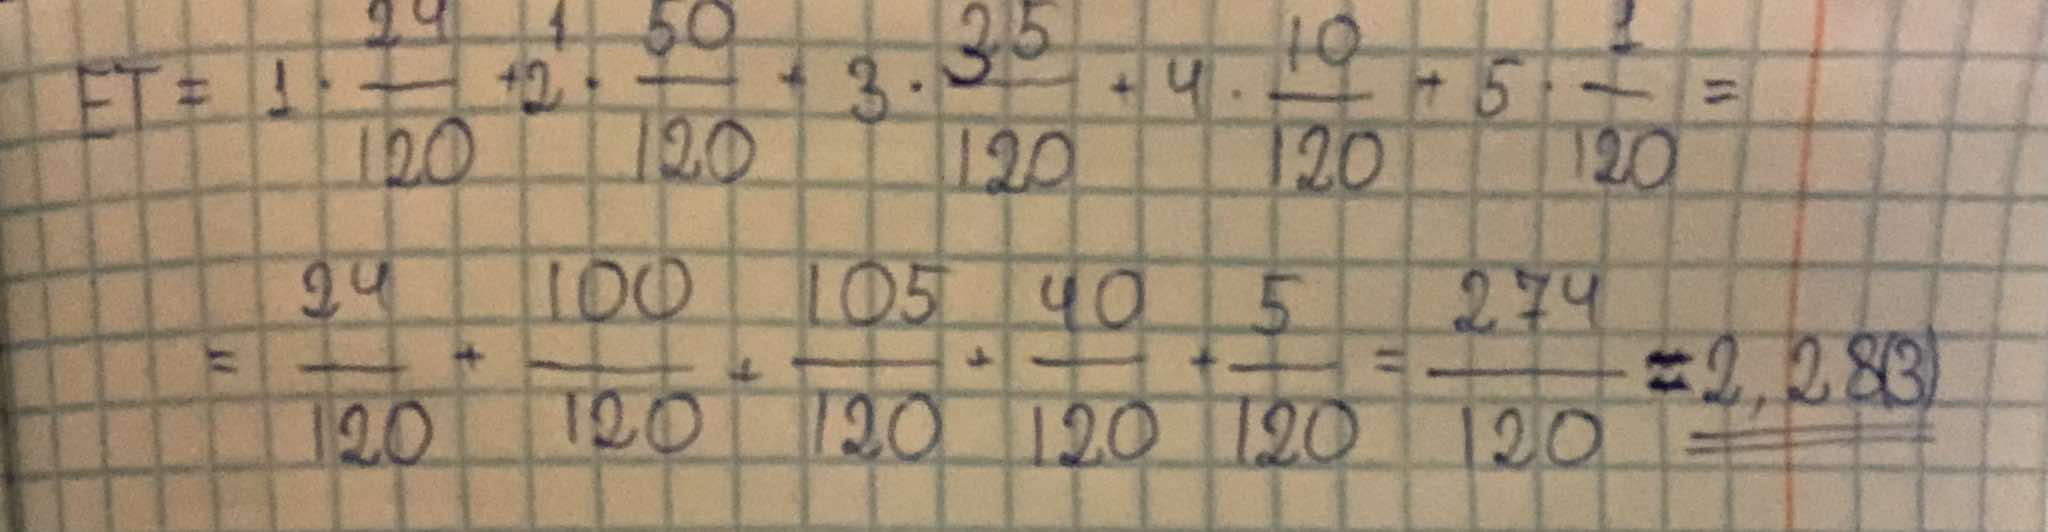 ET = 1 · 24/120 + 2 · 50/120 + 3 · 35/120 + 4 · 10/120 + 5 · 1/120 =
= 24/120 + 100/120 + 105/120 + 40/120 + 5/120 = 274/120 ≈ 2,28(3)